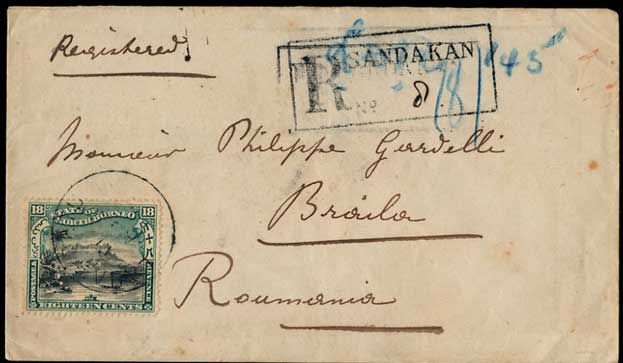 Registered.
SANDAKAN
R
No 8
845
Monsieur Philippe Gardelli
Braila
Roumania
18 STATE OF 18
NORTH BORNEO
POSTAGE & REVENUE
EIGHTEEN CENTS